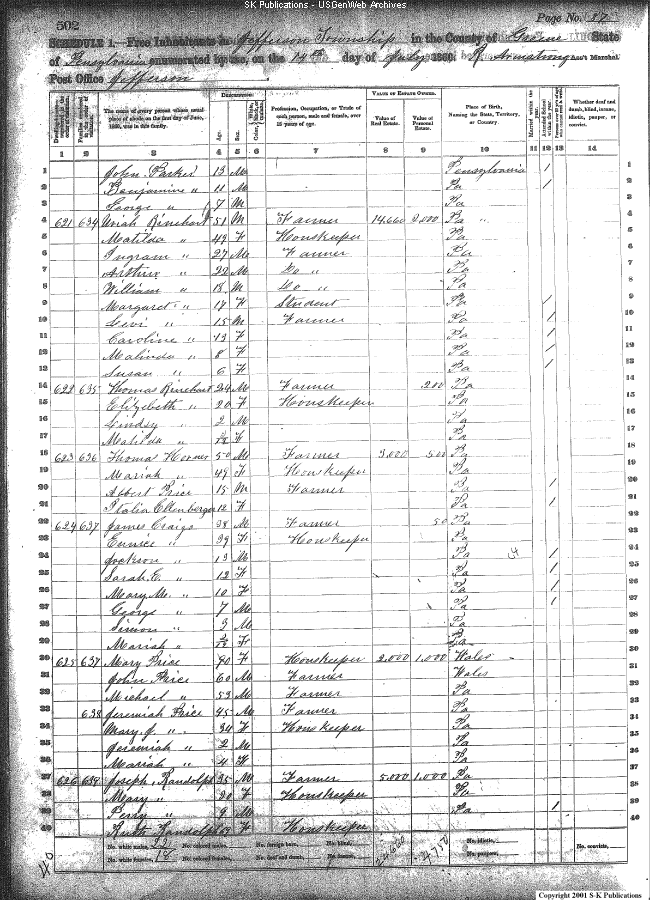 SK Publications - USGenWeb Archives
502
Page No. 87
SCHEDULE 1.—Free Inhabitants in Jefferson Township in the County of Greene State
of Pensylvania enumerated by me, on the 14th day of July 1860. R. Armstrong Ass't Marshal.
Post Office Jefferson
Dwelling-houses numbered in the order of visitation.
Families numbered in the order of visitation.
The name of every person whose usual place of abode on the first day of June, 1860, was in this family.
DESCRIPTION.
Age.
Sex.
Color, White, black, or mulatto.
Profession, Occupation, or Trade of each person, male and female, over 15 years of age.
VALUE OF ESTATE OWNED.
Value of Real Estate.
Value of Personal Estate.
Place of Birth, Naming the State, Territory, or Country.
Married within the year.
Attended School within the year.
Whether deaf and dumb, blind, insane, idiotic, pauper, or convict.
1 2 3 4 5 6 7 8 9 10 11 12 13 14
1 John Parker 13 M Pensylvania / 1
2 Benjamine " 11 M Pa / 2
3 George " 7 M Pa 3
4 621 634 Uriah Rinehart 51 M Farmer 14,660 Pa " 4
5 Matilda " 49 F Houskeeper Pa 5
6 Ingram " 27 M Farmer Pa 6
7 Arthur " 22 M Do " Pa 7
8 William " 18 M Do " Pa 8
9 Margaret " 17 F Student Pa / 9
10 Levi " 15 M Farmer Pa / 10
11 Caroline " 13 F Pa / 11
12 Malinda " 8 F Pa / 12
13 Susan " 6 F Pa / 13
14 622 635 Thomas Rinehart 24 M Farmer 200 Pa 14
15 Elizebeth " 20 F Houskeeper Pa 15
16 Lindsy " 2 M Pa 16
17 Matilda " F Pa 17
18 623 636 Thomas Horner 50 M Farmer 3,000 500 Pa 18
19 Mariah " 49 F Houskeeper Pa 19
20 Albert Price 15 M Farmer Pa / 20
21 Italia Ellenberger 12 F Pa / 21
22 624 637 James Craigo 38 M Farmer 50 Pa 22
23 Eunice " 39 F Houskeeper Pa 23
24 Jackson " 13 M Pa / 24
25 Sarah C. " 12 F Pa / 25
26 Mary M. " 10 F Pa / 26
27 George " 7 M Pa / 27
28 Simon " 3 M Pa 28
29 Mariah " F Pa 29
30 625 637 Mary Price 90 F Houskeeper 2,000 1,000 Wales 30
31 John Price 60 M Farmer Wales 31
32 Michael " 53 M Farmer Pa 32
33 638 Jeremiah Price 45 M Farmer Pa 33
34 Mary J. " 34 F Houskeeper Pa 34
35 Jeremiah " 2 M Pa 35
36 Mariah " 4 F Pa 36
37 626 639 Joseph Randolph 35 M Farmer 5,000 1,000 Pa 37
38 Mary " 30 F Houskeeper Pa 38
39 Perry " 9 M Pa / 39
40 Ruth Randolph F Houskeeper 40
No. white males, 22 No. colored males, No. foreign born, No. blind, No. idiotic, No. convicts,
No. white females, 18 No. colored females, No. deaf and dumb, No. insane, No. paupers,
24,660
4,750
40
Copyright 2001 S-K Publications